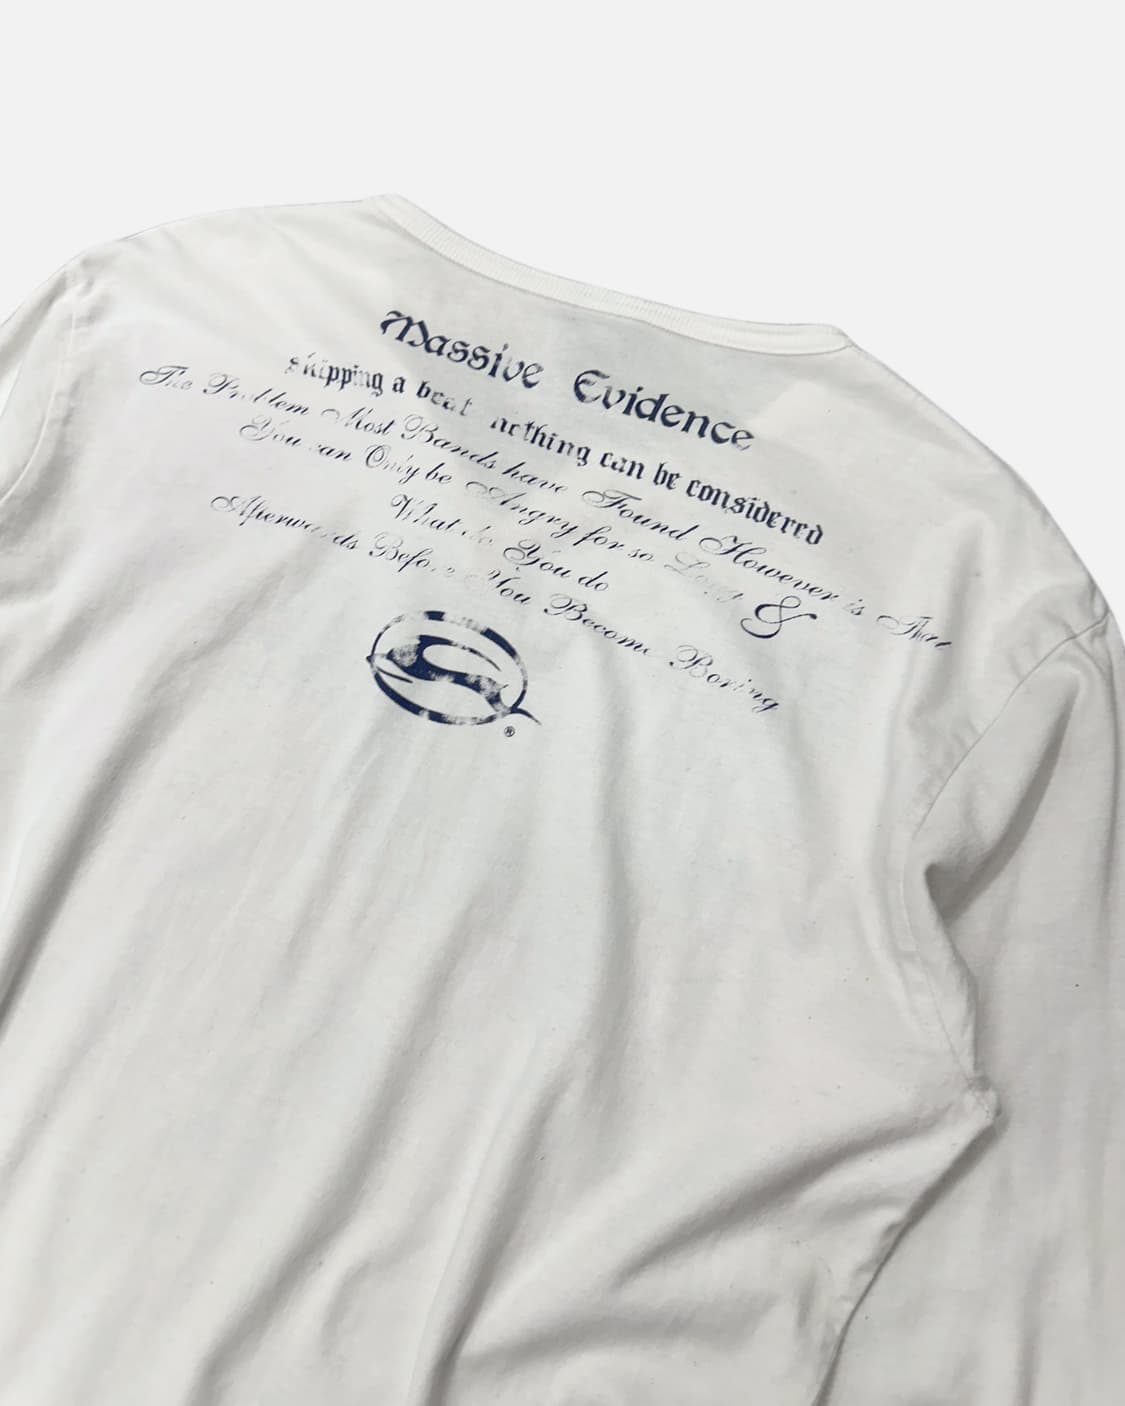 Massive Evidence
skipping a beat nothing can be considered
The Problem Most Bands have Found However is That
You can Only be Angry for so Long &
What do You do
Afterwards Before You Become Boring
®